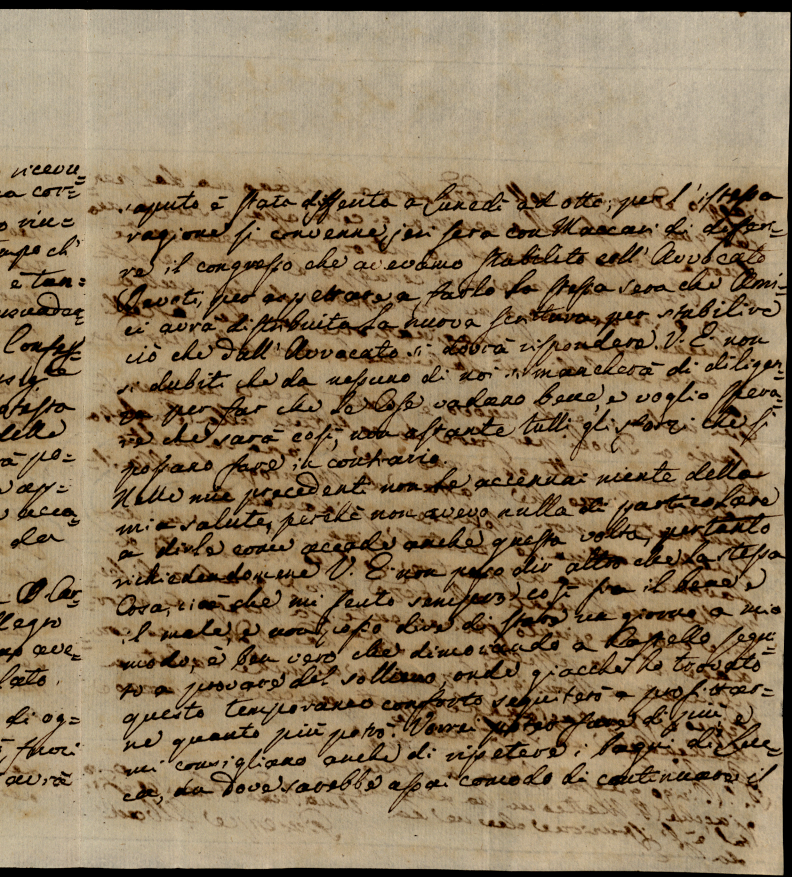 ricevu=
na cor=
o riu=
tempo ch'
e tan=
delle
rà po=
e ap=
dei
D. Car=
llegro
ave=
lato.
di og=
fuori
avrà
saputo è stata differita a Lunedì ad otto; per l'istessa
ragione si convenne jeri sera con Maccari di diffar=
re il congresso che avevamo stabilito coll'Avvocato
Devoti, per aspettare a farlo la stessa sera che Ami=
ci avrà distribuita la nuova scrittura, per stabilire
ciò che dall'Avvocato si dovrà rispondere. V. E. non
si dubiti che da nessuno di noi si mancherà di diligen=
za per far che le cose vadano bene, e voglio spera=
re che sarà così, non ostante tutti gli sforzi che si
possano fare in contrario.
Nelle mie precedenti non ho accennai niente della
mia salute, perchè non avevo nulla di particolare
a dirle come accade anche questa volta, pertanto
richiedendomene V. E. non posso dir altro che la stessa
cosa, cioè che mi sento sempre così fra il bene e
il male, e non posso dire di stare un giorno a mio
modo; è ben vero che dimorando a Cappello segui=
to a provare del sollievo, onde giacchè ho trovato
questo temporaneo conforto seguiterò a profittar=
ne quanto più potrò. Vorrei di più, e
mi consigliano anche di ripetere i bagni di Luc=
ca, da dove sarebbe assai comodo di continuare il